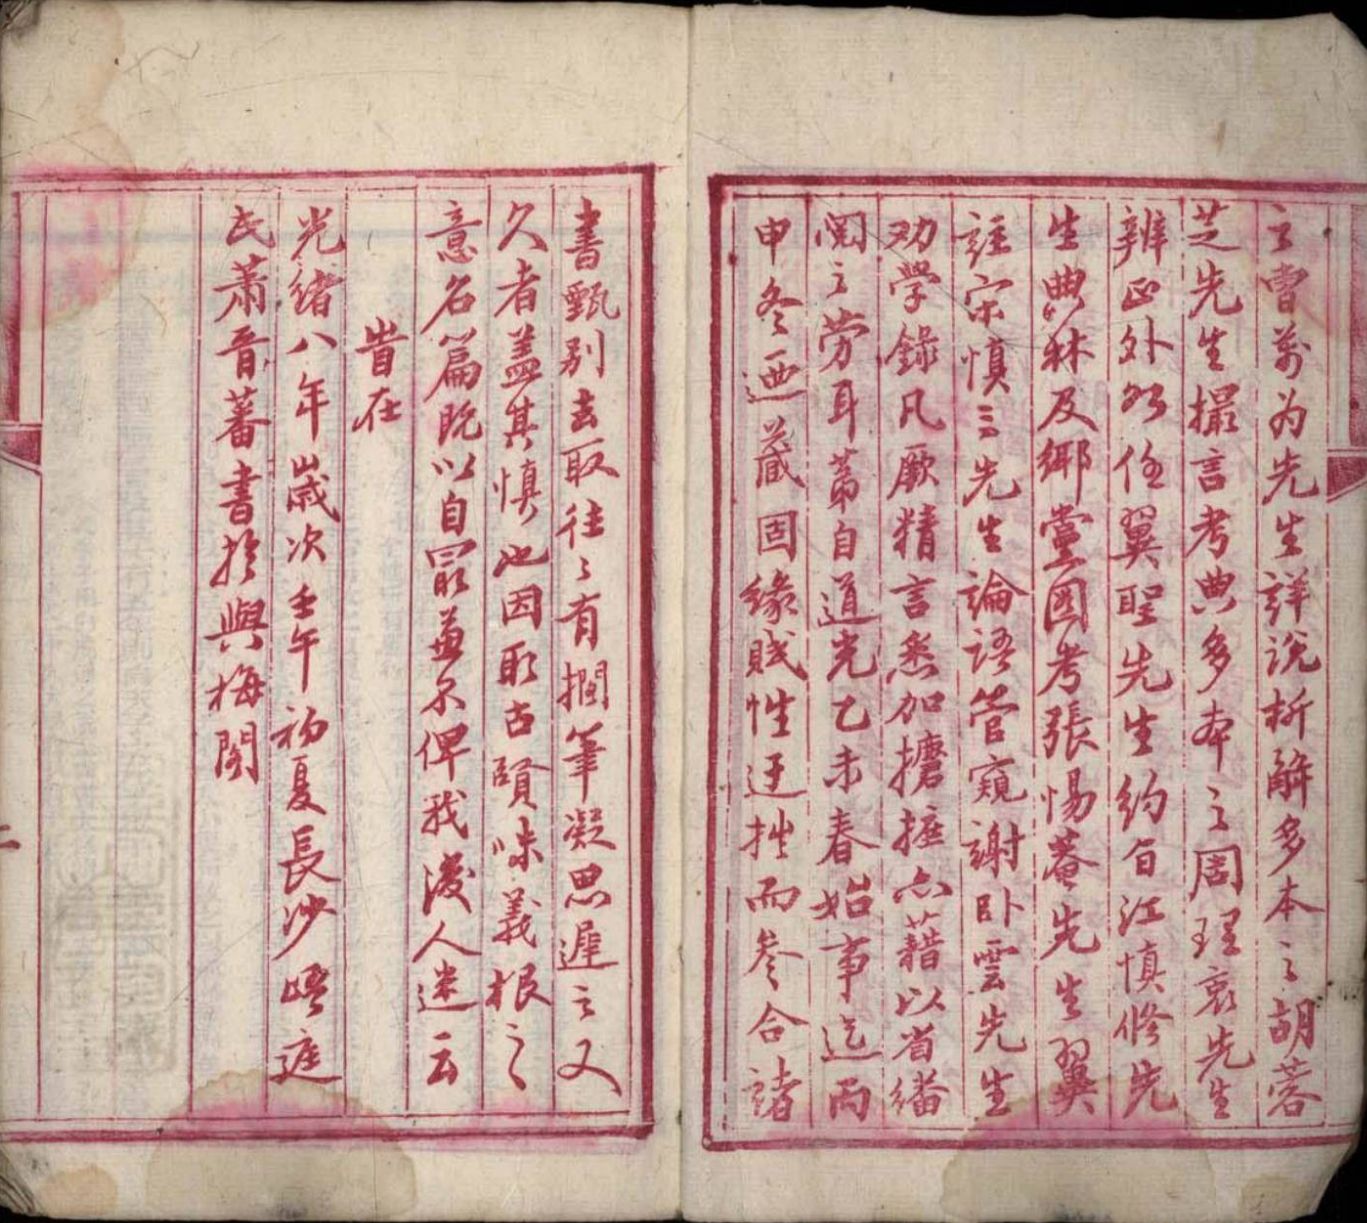 之曹芳为先生詳说析解多本之胡蓉
芝先生撮言考典多本之周理衷先生
辨正外如任翼聖先生約旨江慎修先
生典林及鄉黨圖考張惕菴先生翼
註宋慎三先生論語管窺謝卧雲先生
劝學錄凡厥精言悉加攟摭亦藉以省繙
閱之劳耳萹自道光乙未春始事迄丙
申冬迺蕆固缘賎性迂拙而叅合諸
書甄别去取往〻有擱筆凝思遲之又
久者盖其慎也因取古賢味義根之
意名篇既以自冣兼不俾我後人迷云
峕在
光緒八年歲次壬午初夏長沙晤庭
氏萧晋蕃書於與梅閣
二